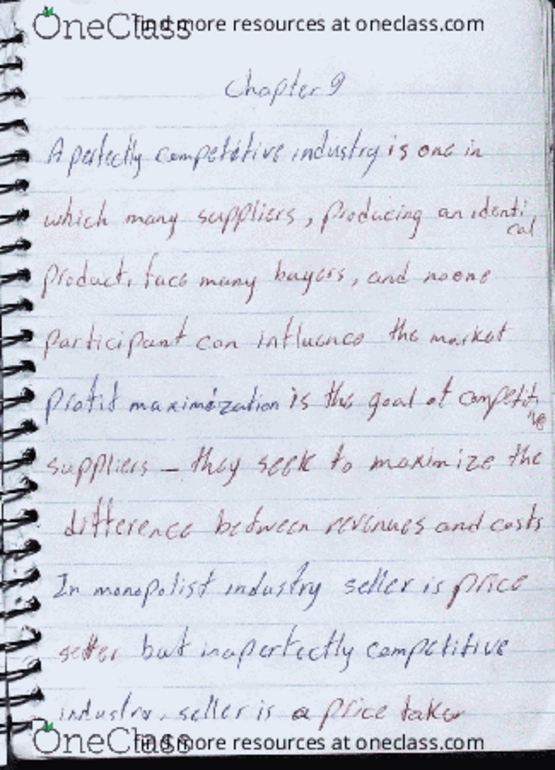 OneClass find more resources at oneclass.com
Chapter 9
A perfectly competitive industry is one in
which many suppliers, producing an identical
product, face many buyers, and no one
participant can influence the market
profit maximization is the goal of competitive
suppliers – they seek to maximize the
difference between revenues and costs
In monopolist industry seller is price
setter but in a perfectly competitive
industry, seller is a price taker
OneClass find more resources at oneclass.com